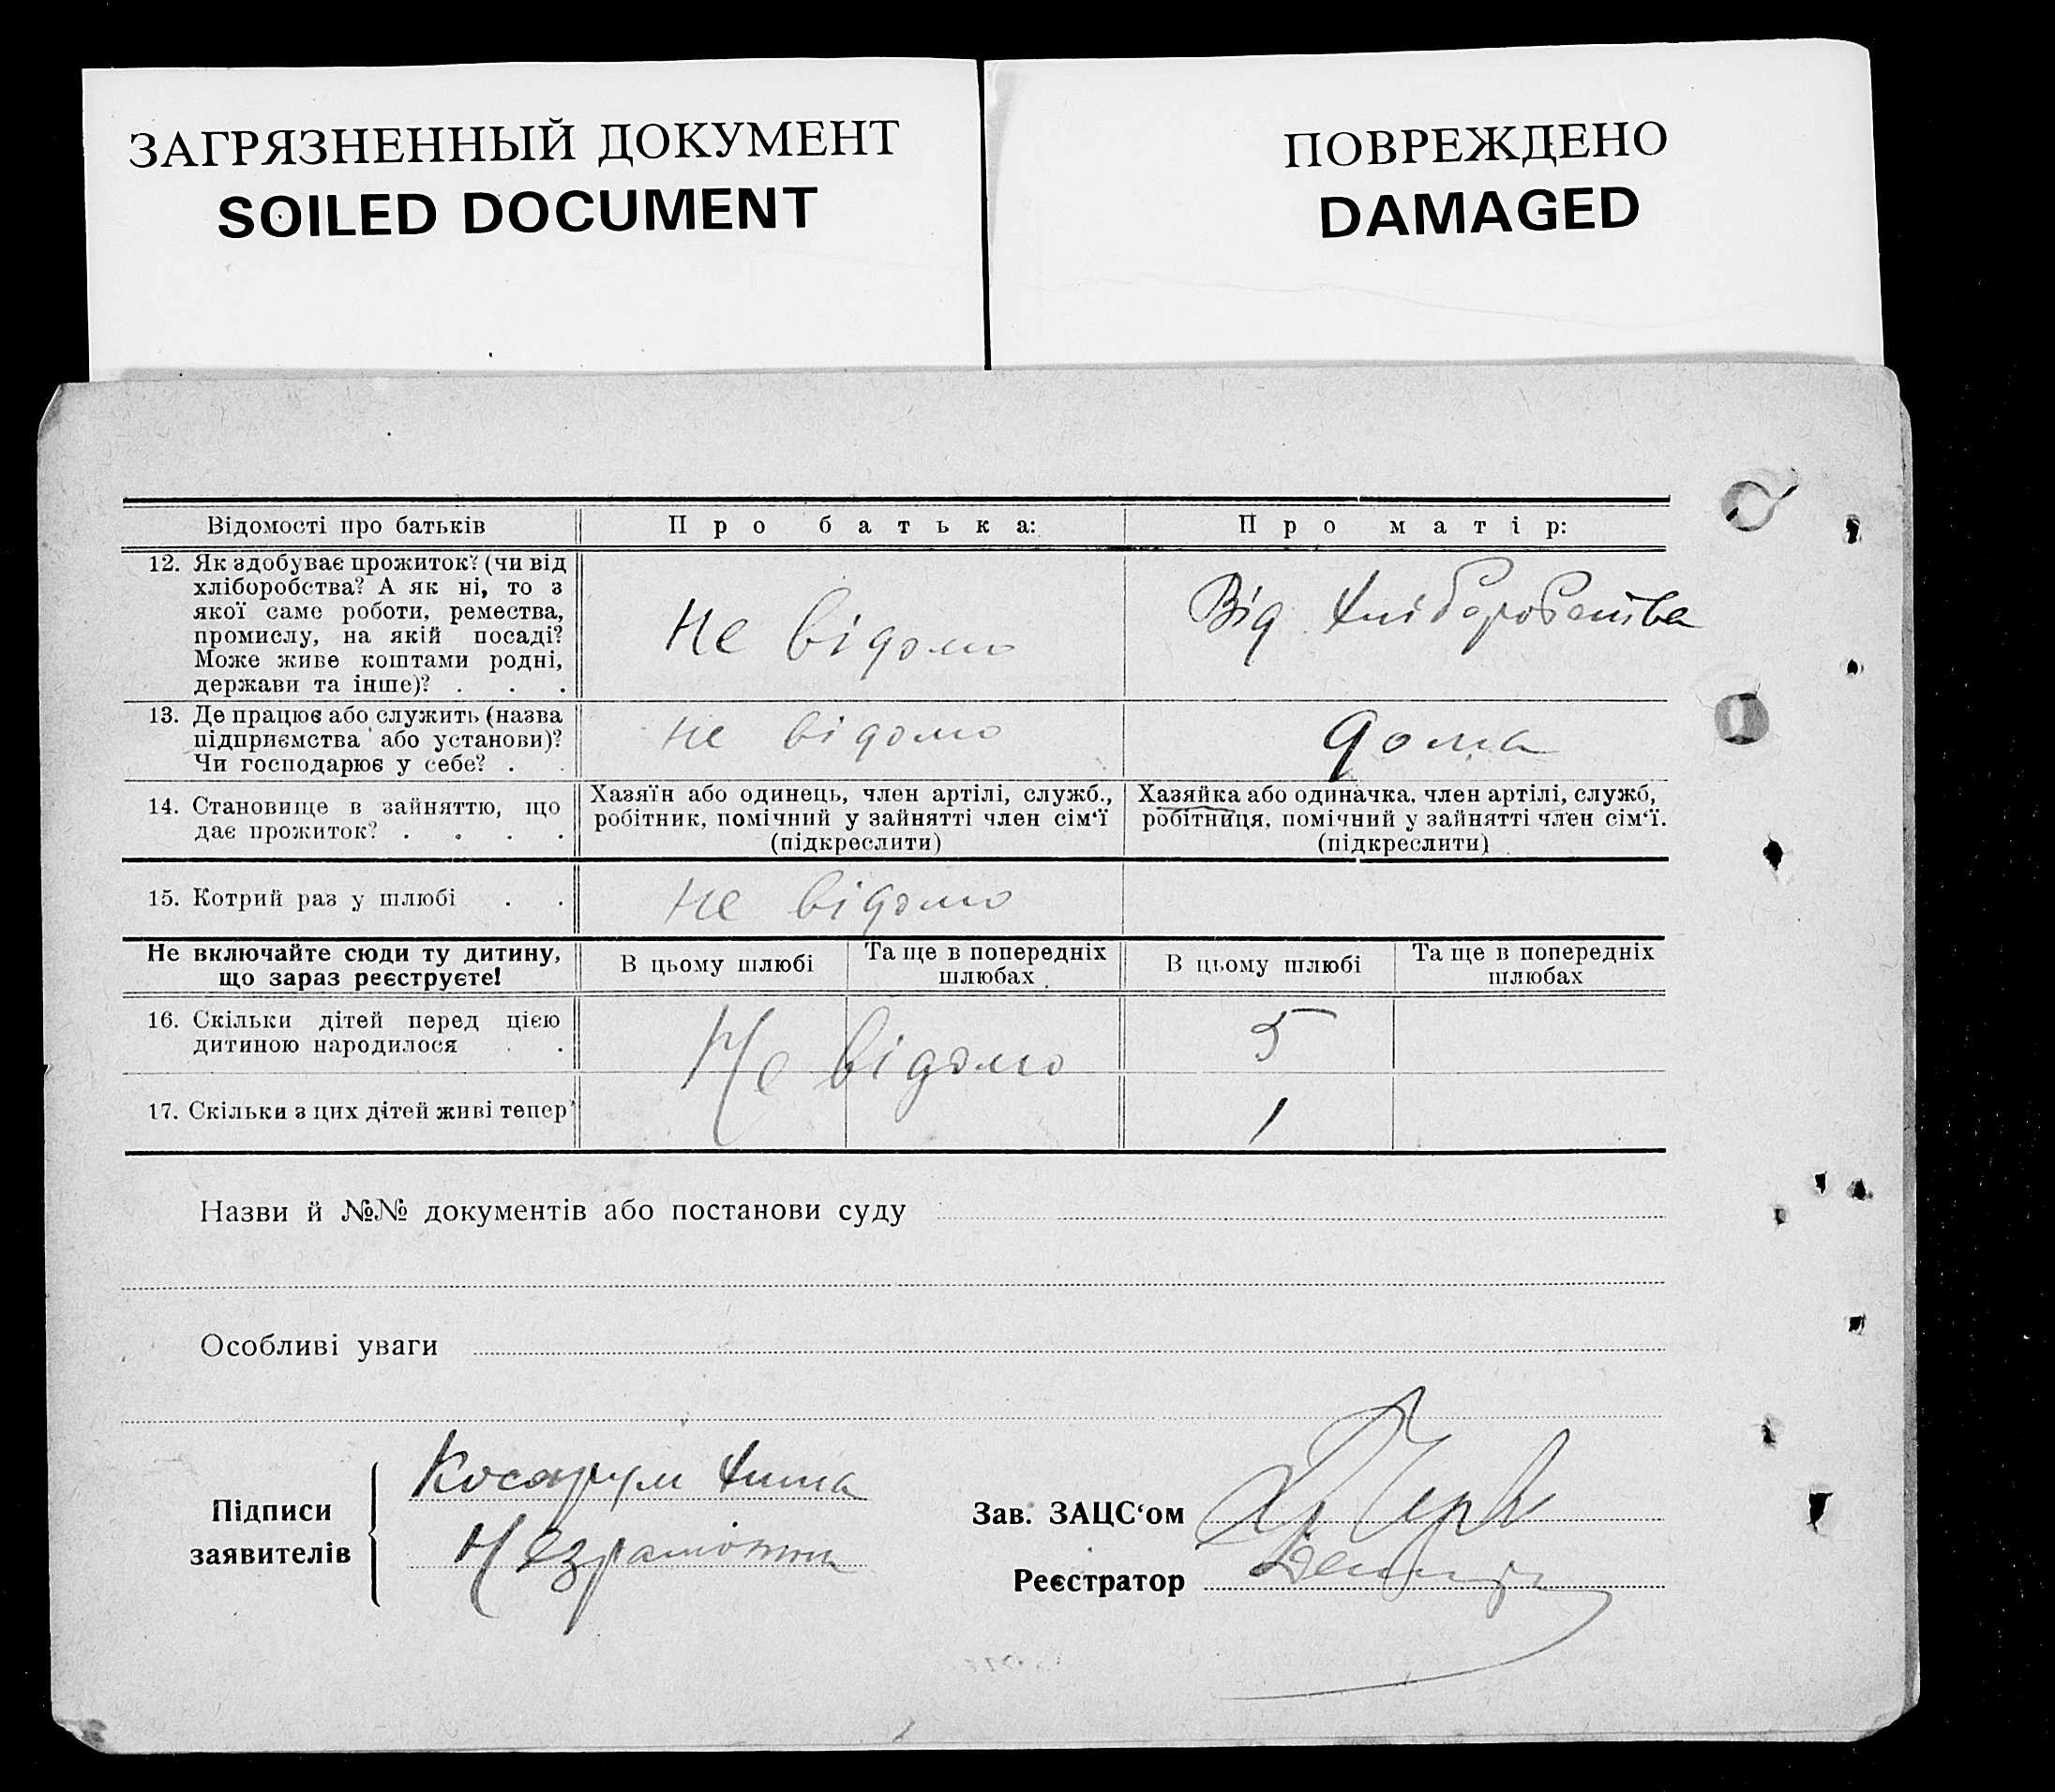 ЗАГРЯЗНЕННЫЙ ДОКУМЕНТ
SOILED DOCUMENT
ПОВРЕЖДЕНО
DAMAGED
Відомості про батьків
Про батька:
Про матір:
12. Як здобуває прожиток? (чи від
хліборобства? А як ні, то з
якої саме роботи, ремества,
промислу, на якій посаді?
Може живе коштами родні,
держави та інше)? . . .
Не відомо
Від хліборобства
13. Де працює або служить (назва
підприємства або установи)?
Чи господарює у себе? .
не відомо
дома
14. Становище в зайняттю, що
дає прожиток? . . . .
Хазяїн або одинець, член артілі, служб.,
робітник, помічний у зайнятті член сім'ї
(підкреслити)
Хазяйка або одиначка, член артілі, служб,
робітниця, помічний у зайнятті член сім'ї.
(підкреслити)
15. Котрий раз у шлюбі . .
не відомо
Не включайте сюди ту дитину,
що зараз реєструєте!
В цьому шлюбі
Та ще в попередніх
шлюбах
В цьому шлюбі
Та ще в попередніх
шлюбах
16. Скільки дітей перед цією
дитиною народилося . .
Не відомо
5
17. Скільки з цих дітей живі тепер
1
Назви й №№ документів або постанови суду
Особливі уваги
Підписи
заявителів
Незрамотна
Зав. ЗАЦС'ом
Реєстратор